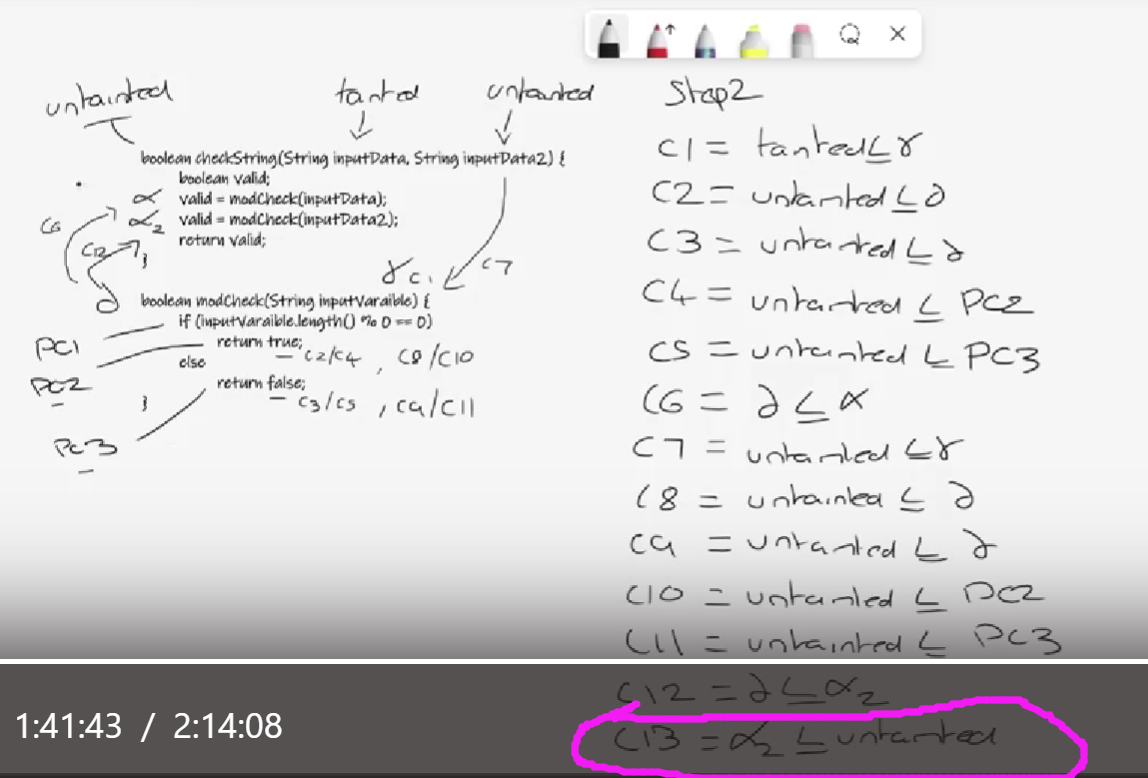 untainted tanted untanted
boolean checkString(String inputData, String inputData2) {
boolean valid;
α valid = modCheck(inputData);
α2 valid = modCheck(inputData2);
return valid;
}
C6
C12
γ C1
C7
∂ boolean modCheck(String inputVaraible) {
if (inputVaraible.length() % 0 == 0)
PC1
return true;
– C2/C4, C8/C10
else
PC2
return false;
– C3/C5, C9/C11
}
PC3
Step2
C1 = tanted ≤ γ
C2 = untanted ≤ ∂
C3 = untanted ≤ ∂
C4 = untanted ≤ PC2
C5 = untanted ≤ PC3
C6 = ∂ ≤ α
C7 = untanted ≤ γ
C8 = untainted ≤ ∂
C9 = untanted ≤ ∂
C10 = untanted ≤ PC2
C11 = untainted ≤ PC3
C12 = ∂ ≤ α2
C13 = α2 ≤ untanted
1:41:43 / 2:14:08